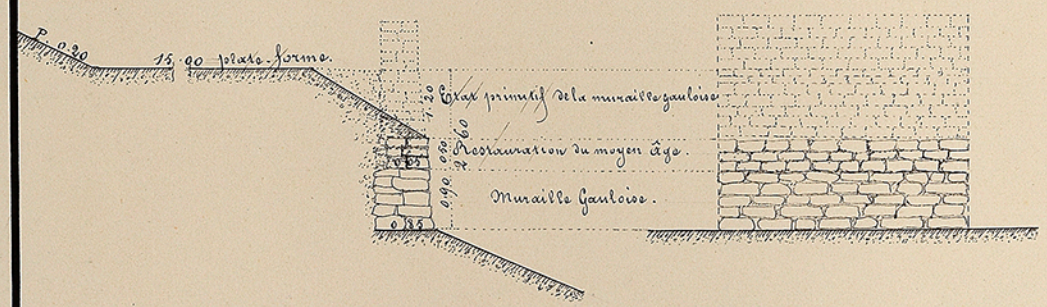 P. 0.20
15.00 plate-forme.
1.20
Etat primitif de la muraille gauloise
2 60
0.50
Restauration du moyen âge.
0.65
0.90
Muraille Gauloise.
0.85